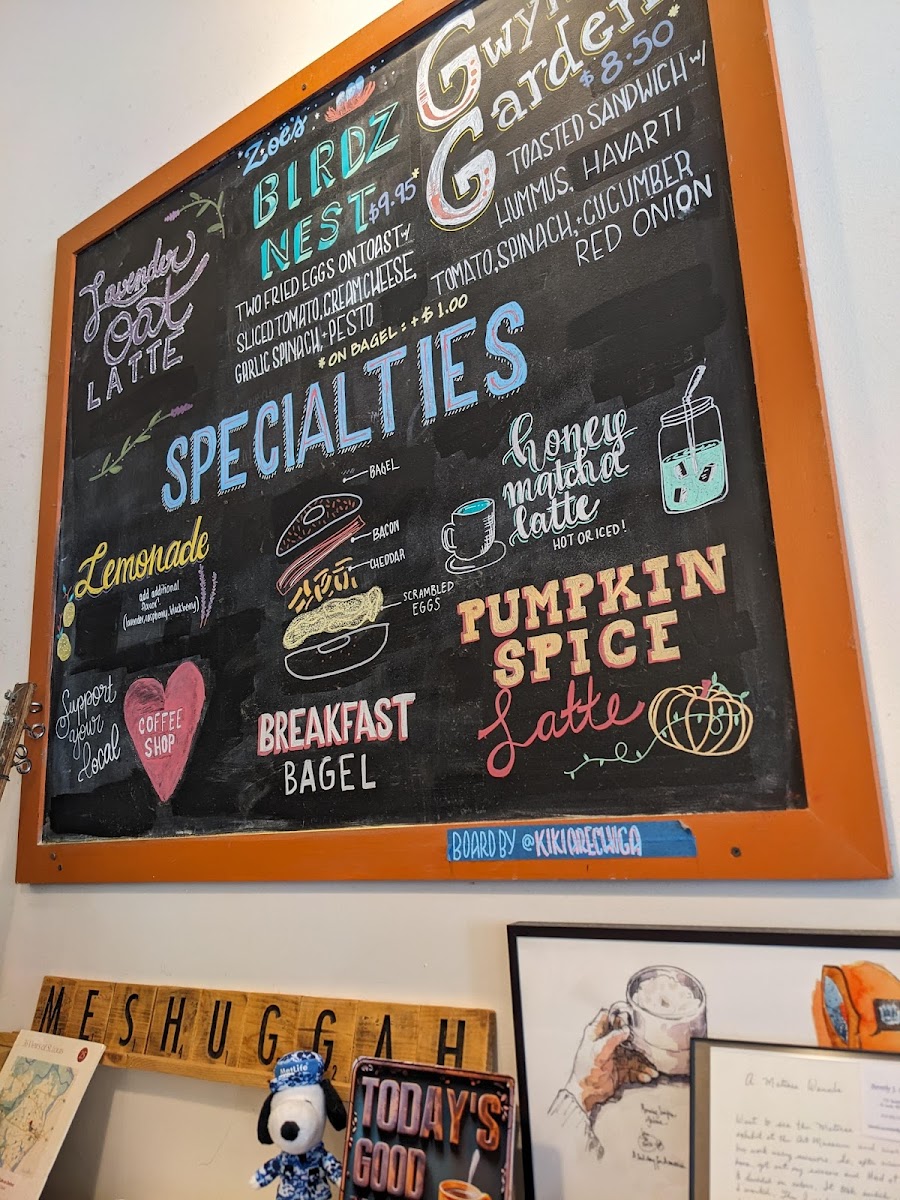 Lavender
Oat
LATTE
Zoë's
BIRDZ
NEST
$9.95*
TWO FRIED EGGS ON TOAST w/
SLICED TOMATO, CREAM CHEESE,
GARLIC SPINACH, + PESTO
*ON BAGEL: +$1.00
Garden
$8.50*
TOASTED SANDWICH w/
HUMMUS, HAVARTI
TOMATO, SPINACH, + CUCUMBER
RED ONION
SPECIALTIES
Lemonade
add additional
flavor:
(lavender, raspberry, blackberry)
Support
your
local
COFFEE
SHOP
BAGEL
BACON
CHEDDAR
SCRAMBLED
EGGS
BREAKFAST
BAGEL
honey
matcha
latte
HOT OR ICED!
PUMPKIN
SPICE
Latte
BOARD BY @KIKIARECHIGA
MESHUGGAH
MetLife
TODAY'S
GOOD